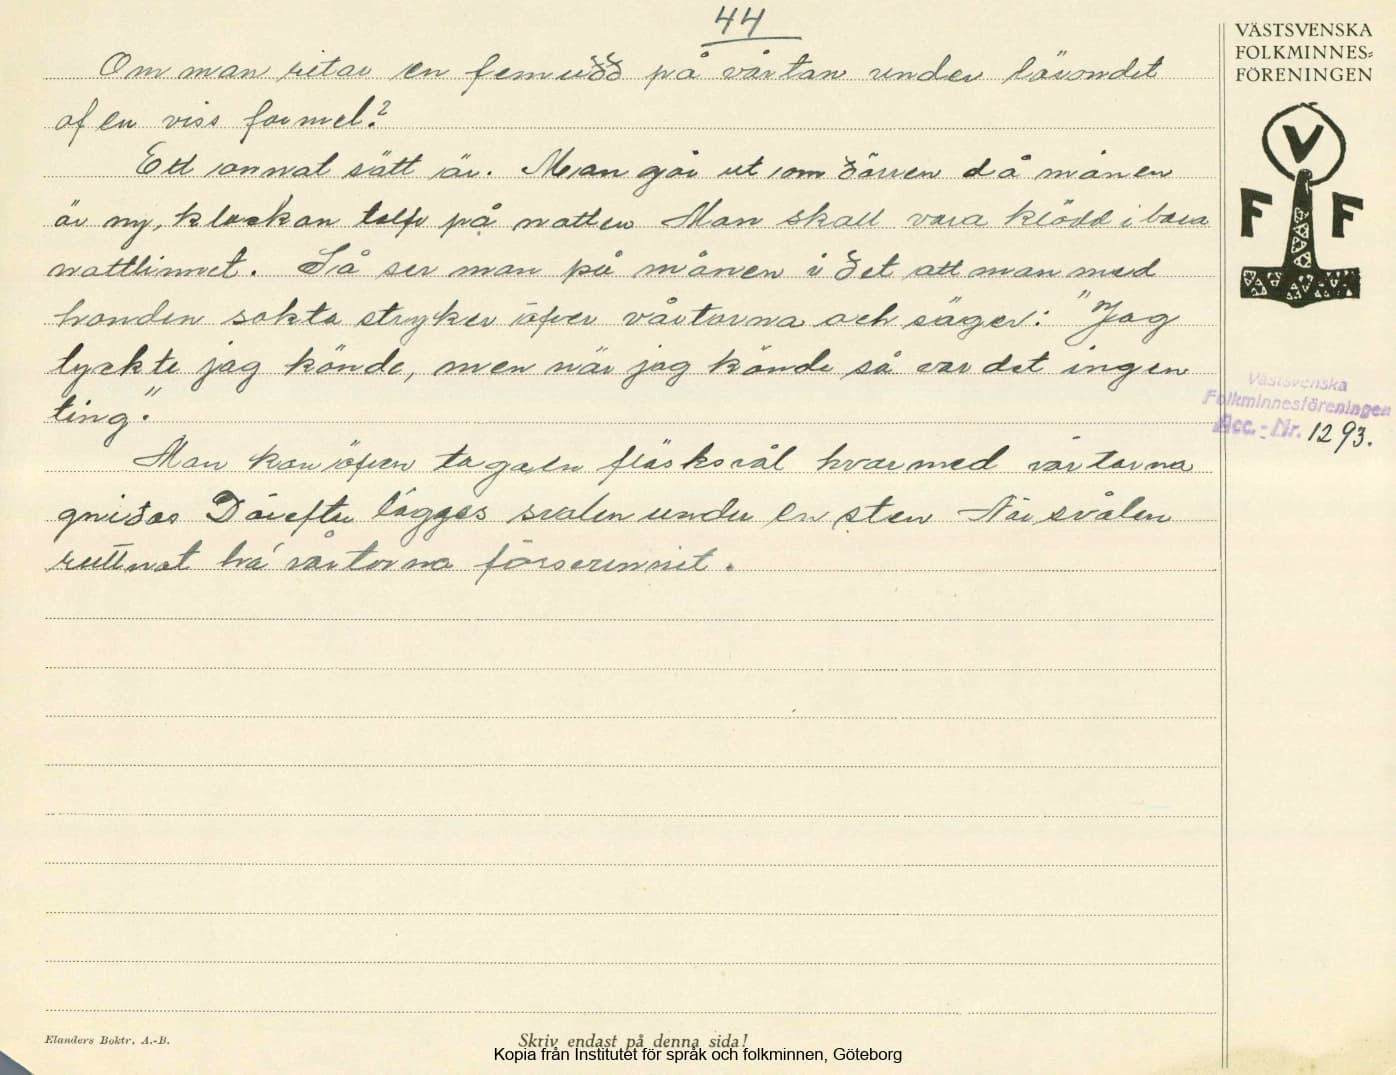 44
VÄSTSVENSKA
FOLKMINNES=
FÖRENINGEN
V
F F
Om man ritar en femudd på vårtan under läsandet
af en viss formel?
Ett annat sätt är. Man går ut om dörren då månen
är ny, klockan tolf på natten Man skall vara klädd i bara
nattlinnet. Så ser man på månen i det att man med
handen sakta stryker öfver vårtorna och säger: "Jag
tyckte jag kände, men när jag kände så var det ingen
ting".
Man kan äfven taga en fläsksvål hvarmed vårtorna
gnidas Därefter lägges svålen under en sten När svålen
ruttnat ha vårtorna försvunnit.
Västsvenska
Folkminnesföreningen
Acc.-Nr. 1293.
Elanders Boktr. A.-B.
Skriv endast på denna sida!
Kopia från Institutet för språk och folkminnen, Göteborg